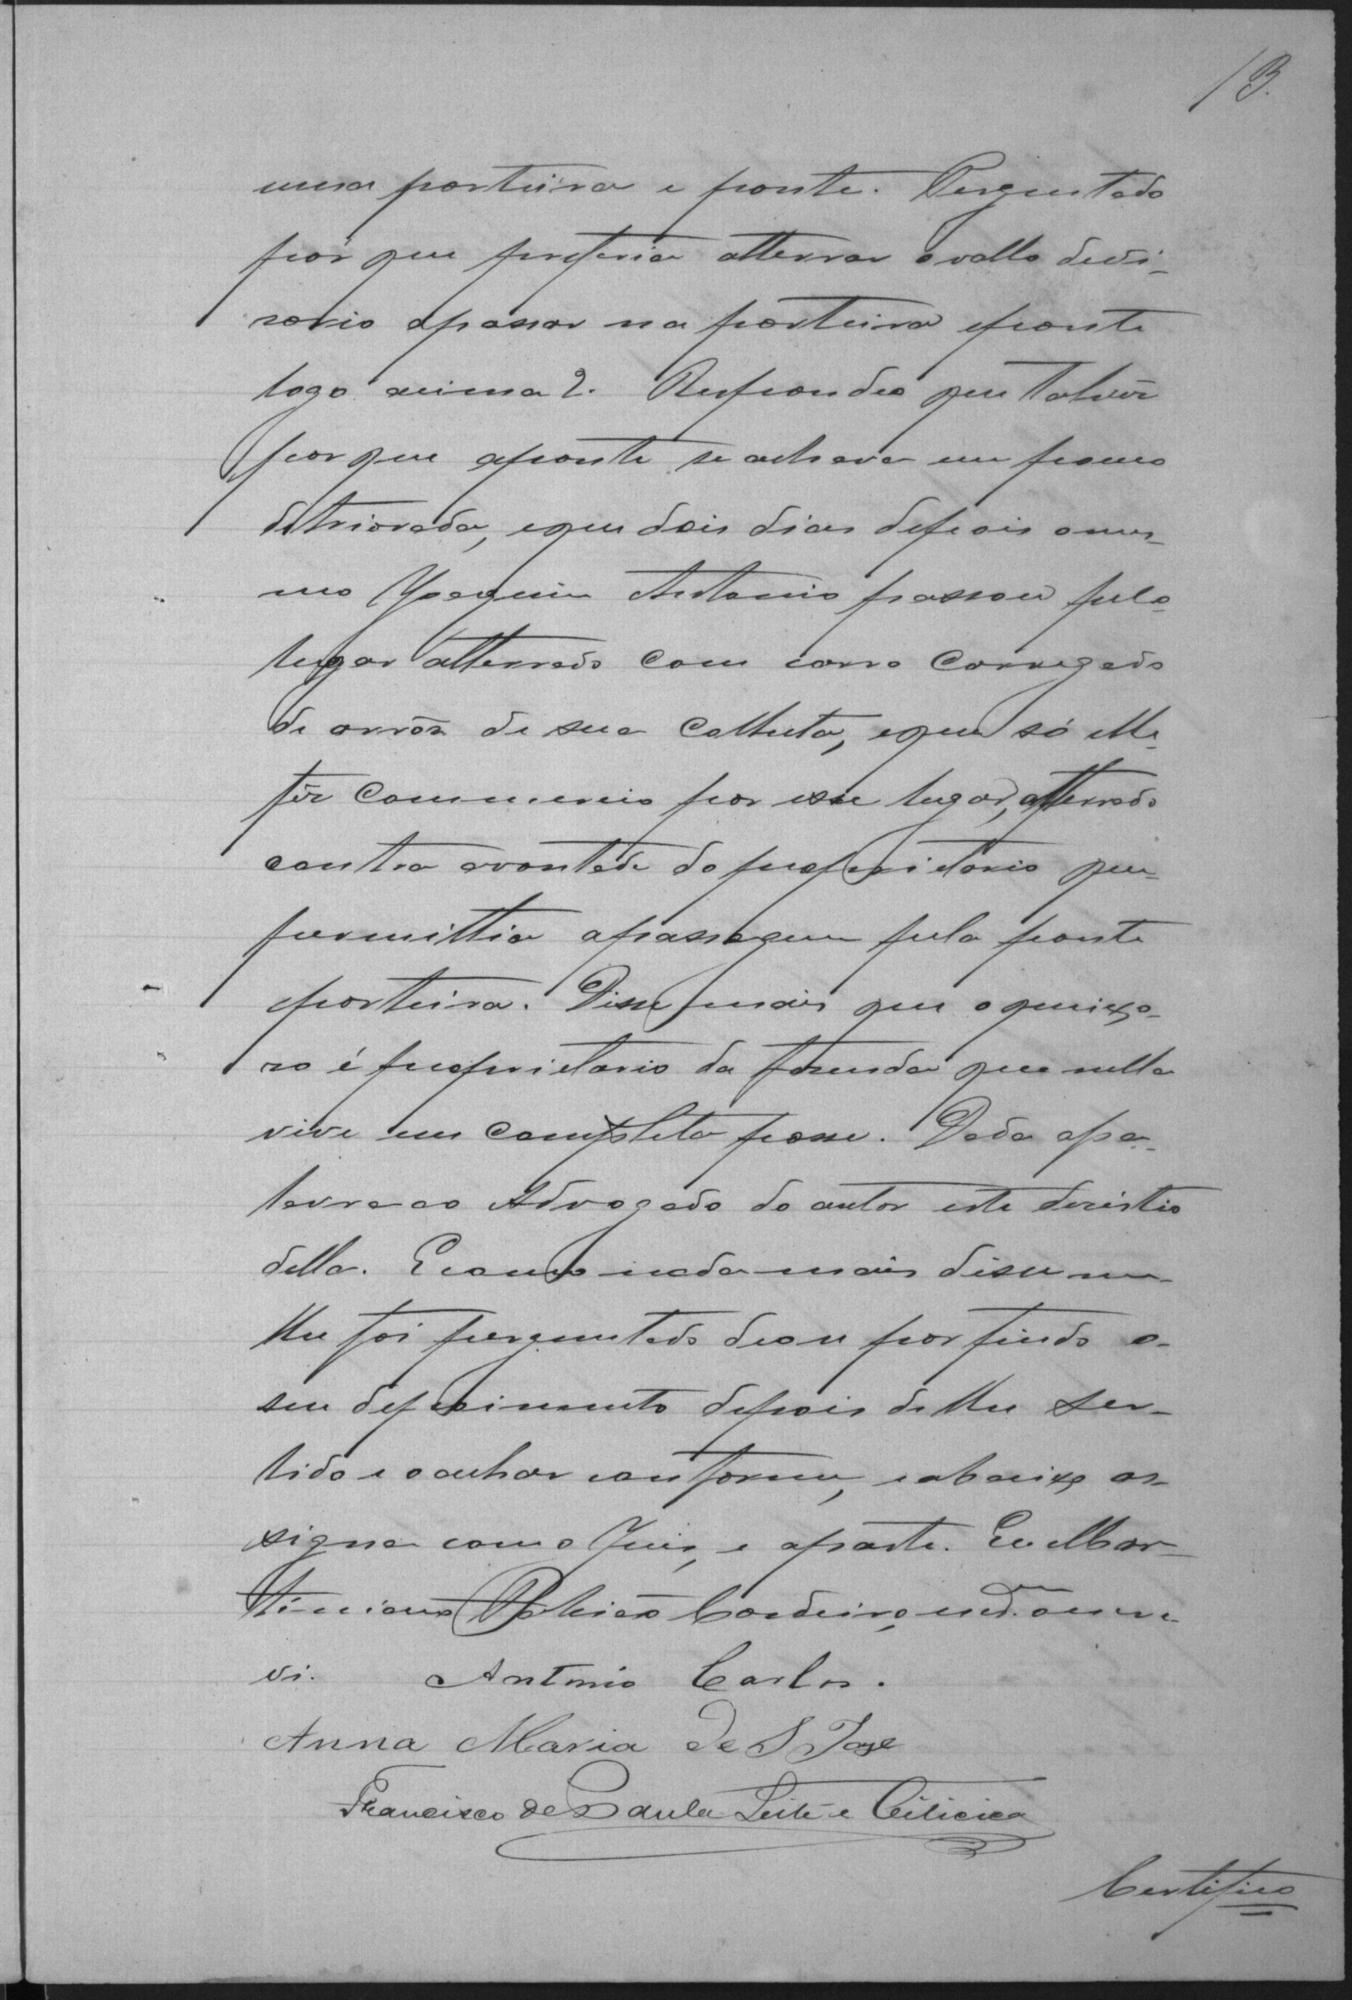 13.
uma porteira e ponte. Perguntado
por que preferia atterrar o vallo devi-
sorio a passar na porteira e ponte
logo acima?. Respondeo que talvez
por que a ponte se achava um pouco
detriorada, e que dois dias depois o mes-
mo Joaquim Antonio passou pelo
lugar atterrado com carro carregado
de arrôz de sua colheita, e que só elle
fêz commercio por esse lugar, atterrado
contra a vontade do proprietario que
permittia a passagem pela ponte
e porteira. Disse mais que o queixo-
so é proprietario da fazenda que nella
vive em completa posse. Dada a pa-
lavra ao Advogado do autor este desistio
della. E como nada mais disse nem
lhe foi perguntado deou por findo o
seu depoimento depois de lhe ser
lido e o achar conforme, e abaixo as-
signa com o Juis, e a parte. Eu Mar-
tiniano Cordeiro, escrivão o escre-
vi. Antonio Carlos.
Anna Maria de S José
Francisco de Paula Leite e
Certifico